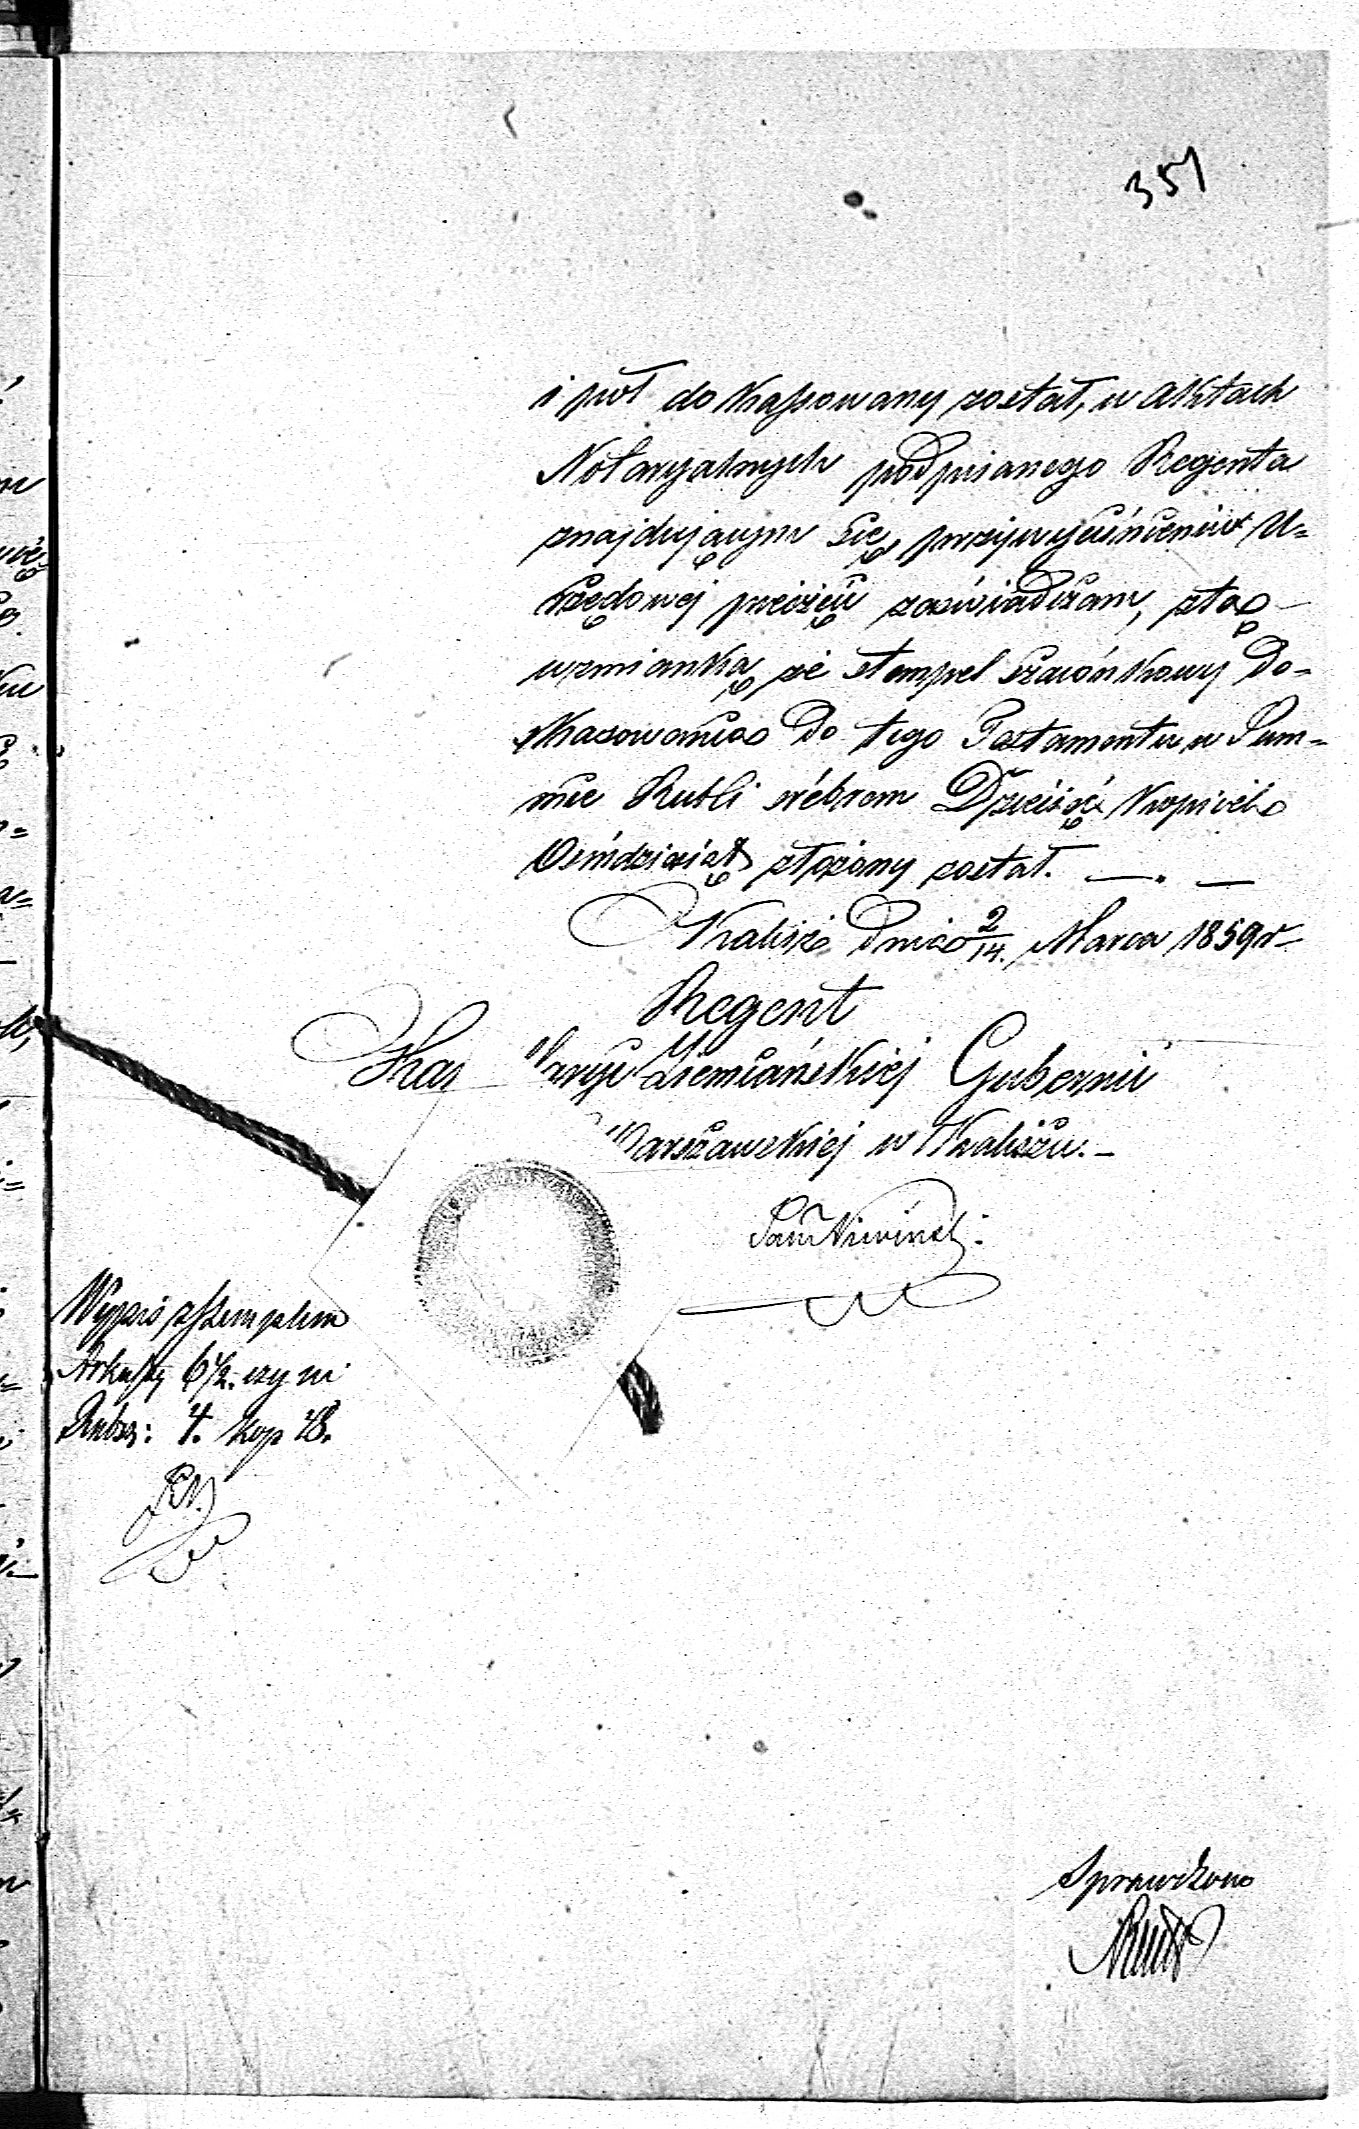 351
i pół do kassowany został, w Aktach
Notaryalnych podpisanego Regenta
znajdującym się, przy wyciśnieniu U-
rzędowej pieczęci zaświadczam, z tą
wzmianką że stempel szacunkowy do-
kasowania do tego Testamentu w Sum-
mie Rubli srebrem Dziewięć kopiejek
Ośmdziesiąt złożony został. —.—
Kalisz dnia 2/14. Marca 1859 r
Regent
Kan laryi Ziemiańskiej Gubernii
Warszawskiej w Kaliszu.—
Wypis z Stemplem
Arkuszy 6 1/2. czyni
Rubsr: 4. kop 48.
Sprawdzono